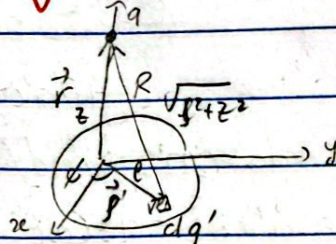 q
R
r⃗
z
√ρ²+z²
y
φ'
ρ⃗'
x
dq'